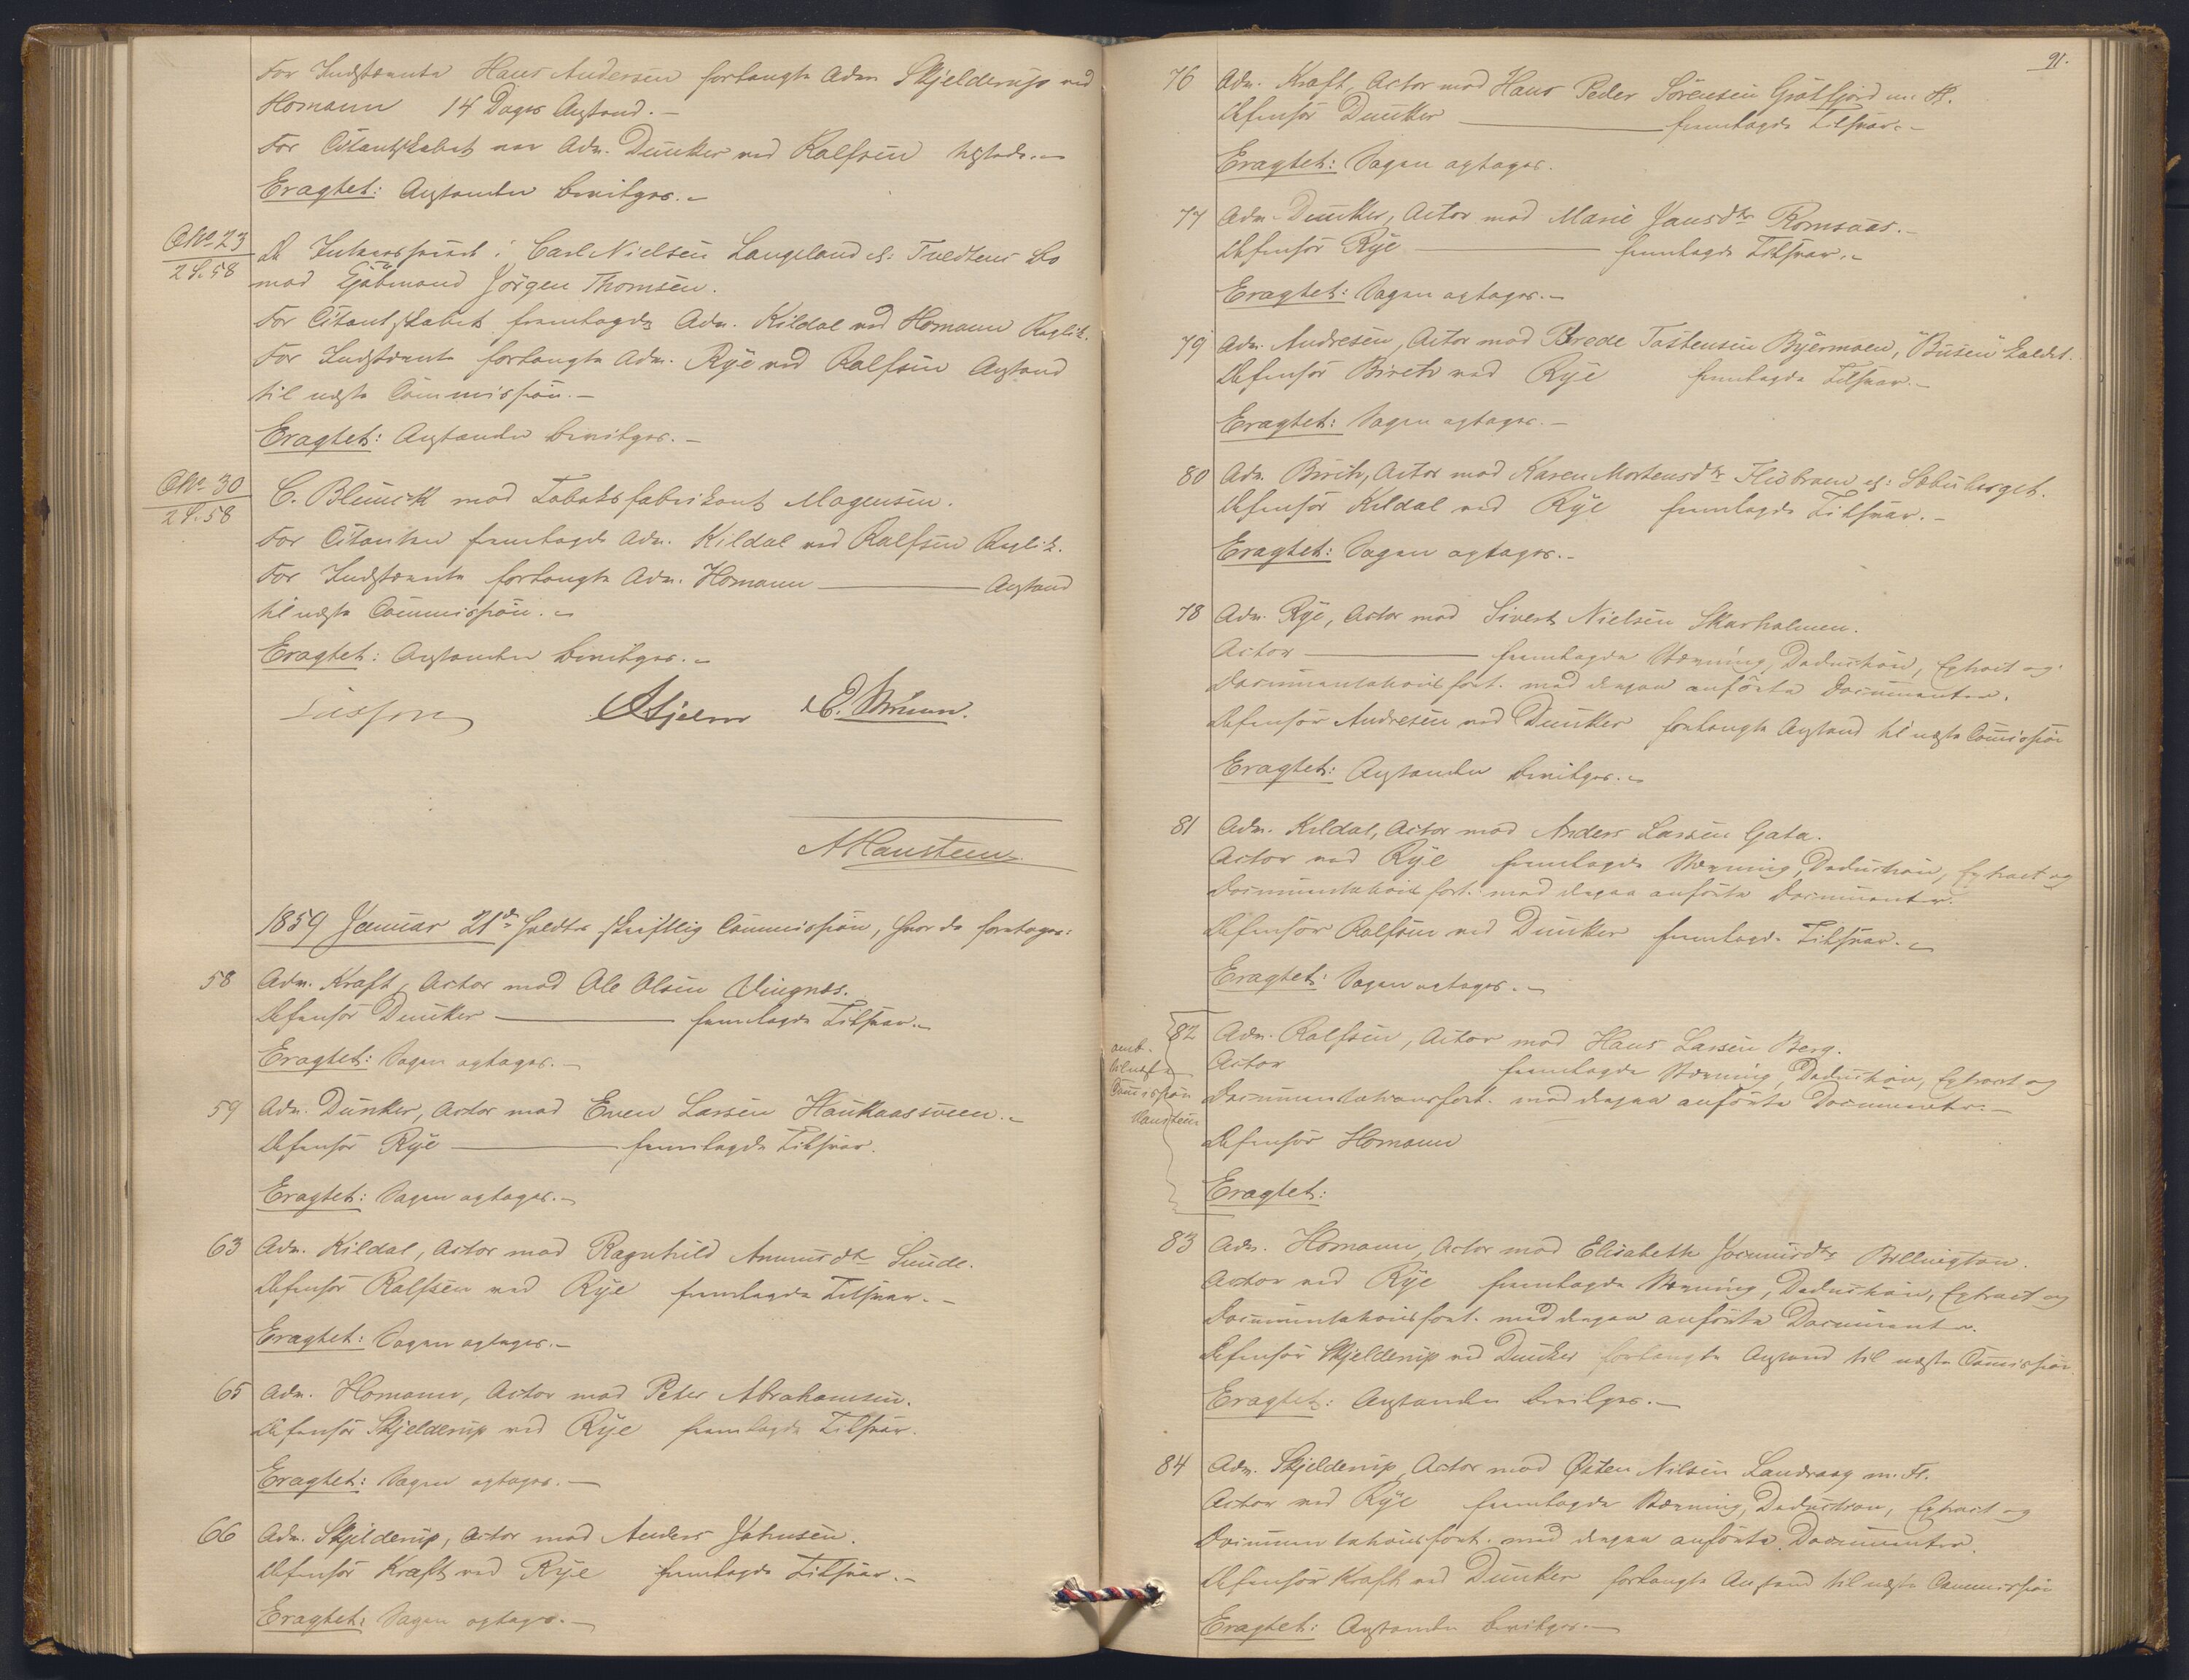 For Indstævnte Hans Andersen forlangte Adv. Skjelderup ved
Homann 14 Dages Anstand.-
For Citantskabet var Adv. Dunker ved Rolfsen tilstede.-
Eragtet: Anstanden bevilges.-
C No 23
2 S. 58
De Interesserede i Carl Nielsen Langeland el: Tvedtens Bo
mod Gabmand Jørgen Thomsen.
For Citantskabet fremlagde Adv. Kildal ved Homann Replik.
For Indstævnte forlangte Adv. Rye ved Rolfsen Anstand
til næste Commission.-
Eragtet: Anstanden bevilges.-
C No 30
2 S. 58
C. Blunck mod Tobaksfabrikant Mogensen.
For Citanten fremlagde Adv. Kildal ved Rolfsen Replik.
For Indstævnte forlangte Adv. Homann Anstand
til næste Commission.-
Eragtet: Anstanden bevilges.-
Hjelm
AHansteen.
1859 Januar 21de holdtes skriftlig Commission, hvor da foretages:
58 Adv. Kraft, Actor mod Ole Olsen Vingnes.
Defensor Dunker fremlagde Tilsvar.-
Eragtet: Sagen optages.-
59 Adv. Dunker, Actor mod Even Larsen Haukaassveen.-
Defensor Rye fremlagde Tilsvar.
Eragtet: Sagen optages.-
63 Adv. Kildal, Actor mod Ragnhild Amundsdtr Sunde.
Defensor Rolfsen ved Rye fremlagde Tilsvar.-
Eragtet: Sagen optages.-
65 Adv. Homann, Actor mod Peter Abrahamsen.
Defensor Skjelderup ved Rye fremlagde Tilsvar.
Eragtet: Sagen optages.-
66 Adv. Skjelderup, Actor mod Anders Johnsen.
Defensor Kraft ved Rye fremlagde Tilsvar.-
Eragtet: Sagen optages.-
91.
76 Adv. Kraft, Actor mod Hans Peder Sørensen Grøtfjord m. Fl.
Defensor Dunker fremlagde Tilsvar.-
Eragtet: Sagen optages.
77 Adv. Dunker, Actor mod Marie Jansdtr Romsaas.-
Defensor Rye fremlagde Tilsvar.-
Eragtet: Sagen optages.-
79 Adv. Andresen, Actor mod Brede Tostensen Byermoen, "Busen" kaldet.
Defensor Birch ved Rye fremlagde Tilsvar.-
Eragtet: Sagen optages.-
80 Adv. Birch, Actor mod Karen Mortensdtr el:
Defensor Kildal ved Rye fremlagde Tilsvar.-
Eragtet: Sagen optages.-
78 Adv. Rye, Actor mod Sivert Nielsen Skarholmen.
Actor fremlagde Stævning, Deduction, Extract og
Documentationsfort. med derpaa anførte Documenter.
Defensor Andresen ved Dunker forlangte Anstand til næste Comission
Eragtet: Anstanden bevilges.-
81 Adv. Kildal, Actor mod Anders Larsen Gata.
Actor ved Rye fremlagde Stævning, Deduction, Extract og
Documentationsfort. med derpaa anførte Documenter.
Defensor Rolfsen ved Dunker fremlagde Tilsvar.-
Eragtet: Sagen optages.-
82 Adv. Rolfsen, Actor mod Hans Larsen Berg.
til næste
Comission
Hansteen
Actor fremlagde Stævning, Deduction, Extract og
Documentationsfort. med derpaa anførte Documenter.-
Defensor Homann
Eragtet:
83 Adv. Homann, Actor mod Elisabeth Billington.
Actor ved Rye fremlagde Stævning, Deduction, Extract og
Documentationsfort. med derpaa anførte Documenter.
Defensor Skjelderup ved Dunker forlangte Anstand til næste Comission.
Eragtet: Anstanden bevilges.-
84 Adv. Skjelderup, Actor mod Østen Nilsen Landraag m. Fl.
Actor ved Rye fremlagde Stævning, Deduction, Extract og
Documentationsfort. med derpaa anførte Documenter.
Defensor Kraft ved Dunker forlangte Anstand til næste Commission
Eragtet: Anstanden bevilges.-